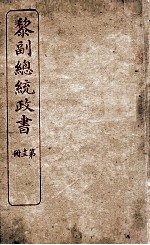 黎副總統政書
第五冊